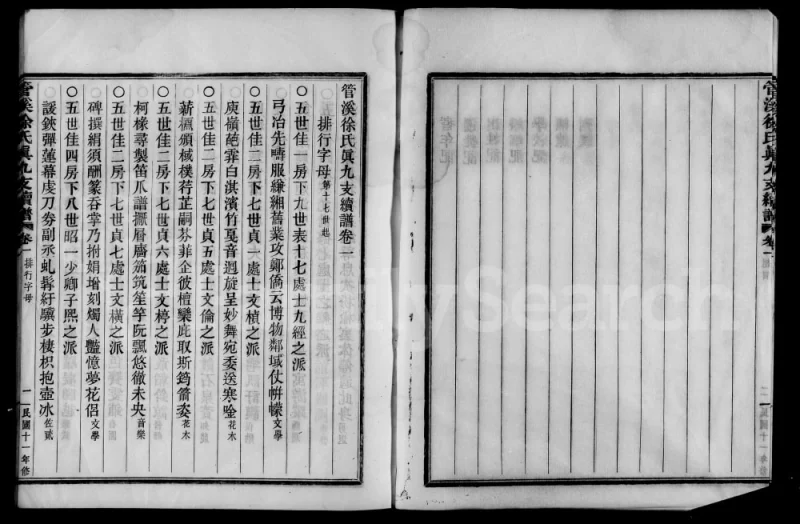 管溪徐氏眞九支續譜卷一
排行字母 第十七世起
〇五世佳一房下九世表十七處士九經之派
弓冶先疇服縑緗舊業攻鄭僑云博物鄰域仗帡幪 文學
〇五世佳二房下七世貞一處士文楨之派
庾嶺葩霏白淇濱竹戛音迴旋呈妙舞宛委送寒唫 花木
〇五世佳二房下七世貞五處士文倫之派
薪 頫棫樸荇芷嗣芬菲企彼檀欒庇取斯筠箭姿 花木
〇五世佳二房下七世貞六處士文椁之派
柯椽尋製笛爪譜擫 牆茄筑笙竽阮飄悠徹未央 音樂
〇五世佳二房下七世貞七處士文橫之派
碑撰絹須酬篆吞掌乃拊娟增刻燭人豔憶夢花侶 文學
〇五世佳四房下八世昭一少卿子熙之派
諼鋏彈蓮幕虔刀券副丞虬髯紆驥步棲枳抱壺冰 佐貳
管溪徐氏眞九支續譜 卷一 排行字母 一 民國十一年修
管溪徐氏眞九支續譜 卷一 二 民國十一年修
FamilySearch